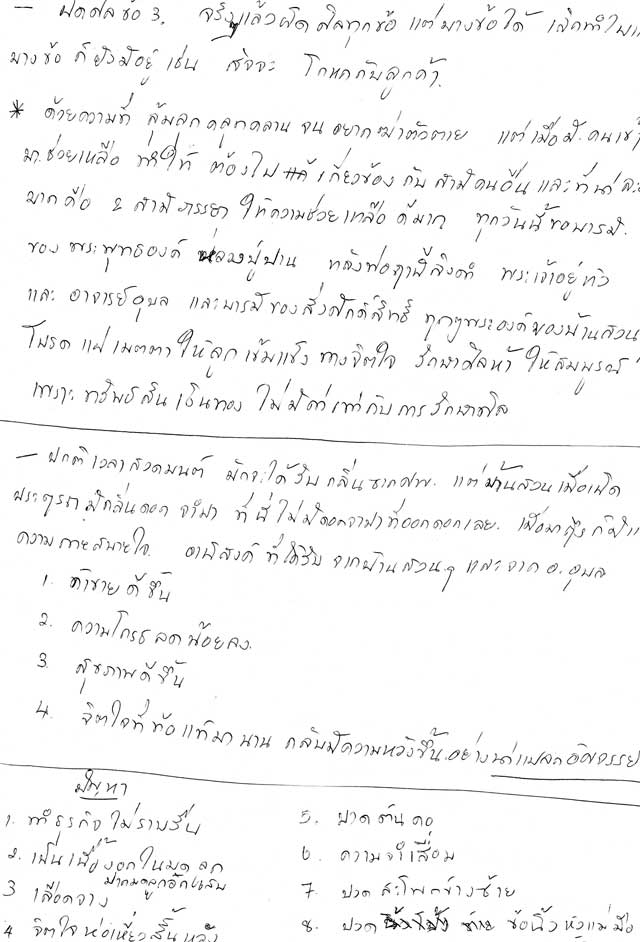 – ผิดศีลข้อ 3. จริงๆแล้วผิดศีลทุกข้อ แต่บางข้อได้ เลิกทำไป
บางข้อ ก็ยังมีอยู่ เช่น สัจจะ โกหกกับลูกค้า.
* ด้วยความที่ ล้มลุกคลุกคลาน จนอยากฆ่าตัวตาย แต่เมื่อมี คนเข้า
มาช่วยเหลือ ทำให้ ต้องไป เกี่ยวข้อง กับ สามีคนอื่น และที่
มากคือ 2 สามีภรรยา ให้ความช่วยเหลือ ดีมาก ทุกวันนี้ขอบารมี
ของ พระพุทธองค์ หลวงปู่ปาน หลวงพ่อฤาษีลิงดำ พระเจ้าอยู่หัว
และ อาจารย์อุบล และบารมีของสิ่งศักดิ์สิทธิ์ ทุกๆพระองค์ของบ้านสวน
โปรด แผ่เมตตา ให้ลูก เข้มแข็ง ทางจิตใจ รักษาศีลห้า ให้สมบูรณ์
เพราะ ทรัพย์สิน เงินทอง ไม่มีค่าเท่ากับ การรักษาศีล
– ปกติเวลาสวดมนต์ มักจะได้รับ กลิ่นซากศพ. แต่บ้านสวนเมื่อเปิด
ประตูรถ มีกลิ่นดอก จำปา ที่นี่ไม่มีดอกจำปาที่ออกดอกเลย. เมื่อมาถึง ก็มี
ความสบายใจ. อานิสงค์ ที่ได้รับ จากบ้านสวนๆ และจาก อ.อุบล
1. ค้าขายดีขึ้น
2. ความโกรธ ลดน้อยลง.
3. สุขภาพดีขึ้น
4. จิตใจที่ท้อแท้มานาน กลับมีความหวังขึ้น อย่างน่าแปลกอัศจรรย์
ปัญหา
1. ทำธุรกิจไม่ราบรื่น
2. เป็นเนื้องอกในมดลูก
ปากมดลูกอักเสบ
3 เลือดจาง
4 จิตใจห่อเหี่ยวสิ้นหวัง
5. ปวดต้นคอ
6. ความจำเสื่อม
7. ปวด สะโพกข้างซ้าย
8. ปวด ข้อนิ้ว หัวแม่มือ